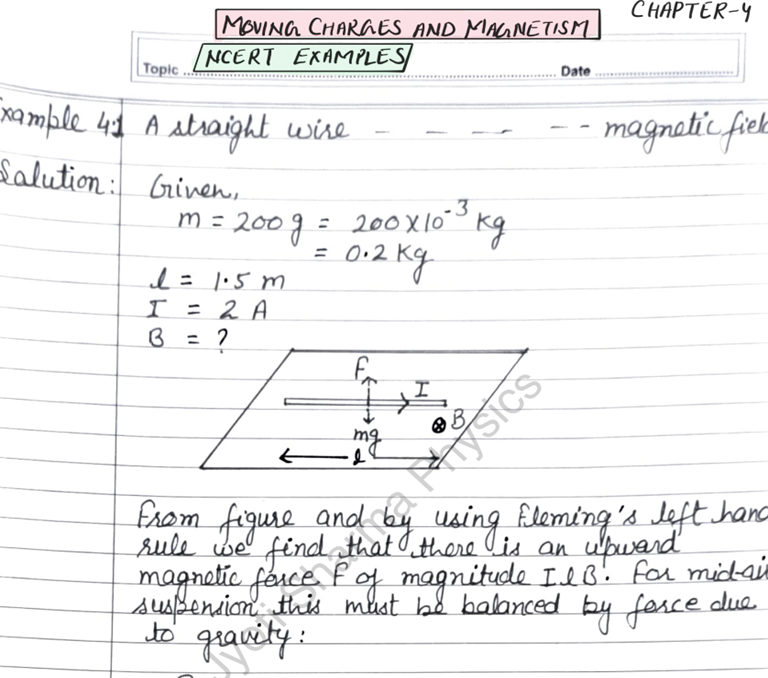 CHAPTER-4
MOVING CHARGES AND MAGNETISM
NCERT EXAMPLES
Topic Date
xample 4.1 A straight wire - - - - - - magnetic fiel
Solution: Given,
m = 200 g = 200×10⁻³ kg
= 0.2 kg
l = 1.5 m
I = 2 A
B = ?
F
I
B
mg
l
From figure and by using Fleming's left hand
rule we find that there is an upward
magnetic force F of magnitude IlB. For mid-ai
suspension this must be balanced by force due
to gravity:
Jyoti Sharma Physics